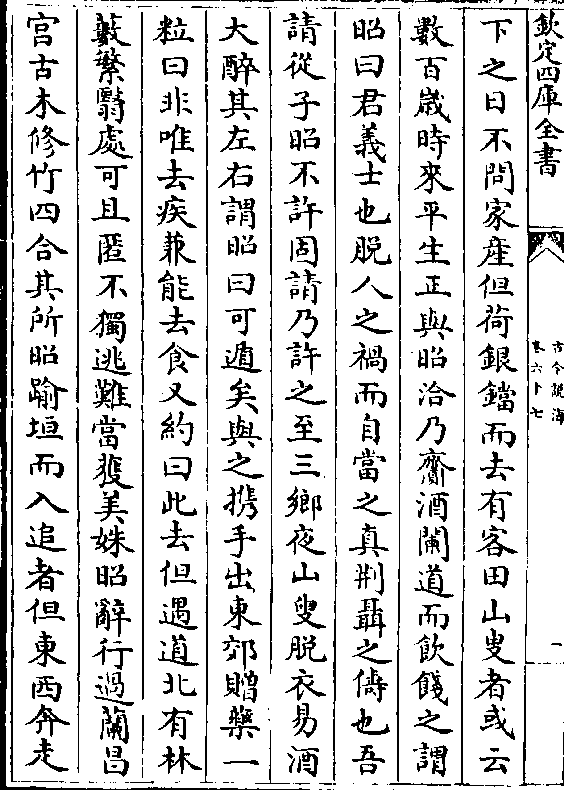 欽定四庫全書
古今說海
卷六十七
一
下之日不問家産但荷銀鐺而去有客田山叟者或云
數百嵗時來平生正與昭洽乃齎酒闌道而飲餞之謂
昭曰君義士也脱人之禍而自當之真荆聶之儔也吾
請從子昭不許固請乃許之至三鄉夜山叟脱衣易酒
大醉其左右謂昭曰可遁矣與之携手出東郊贈藥一
粒曰非唯去疾兼能去食又約曰此去但遇道北有林
藪繁翳處可且匿不獨逃難當獲美姝昭辭行過蘭昌
宫古木修竹四合其所昭踰垣而入追者但東西奔走